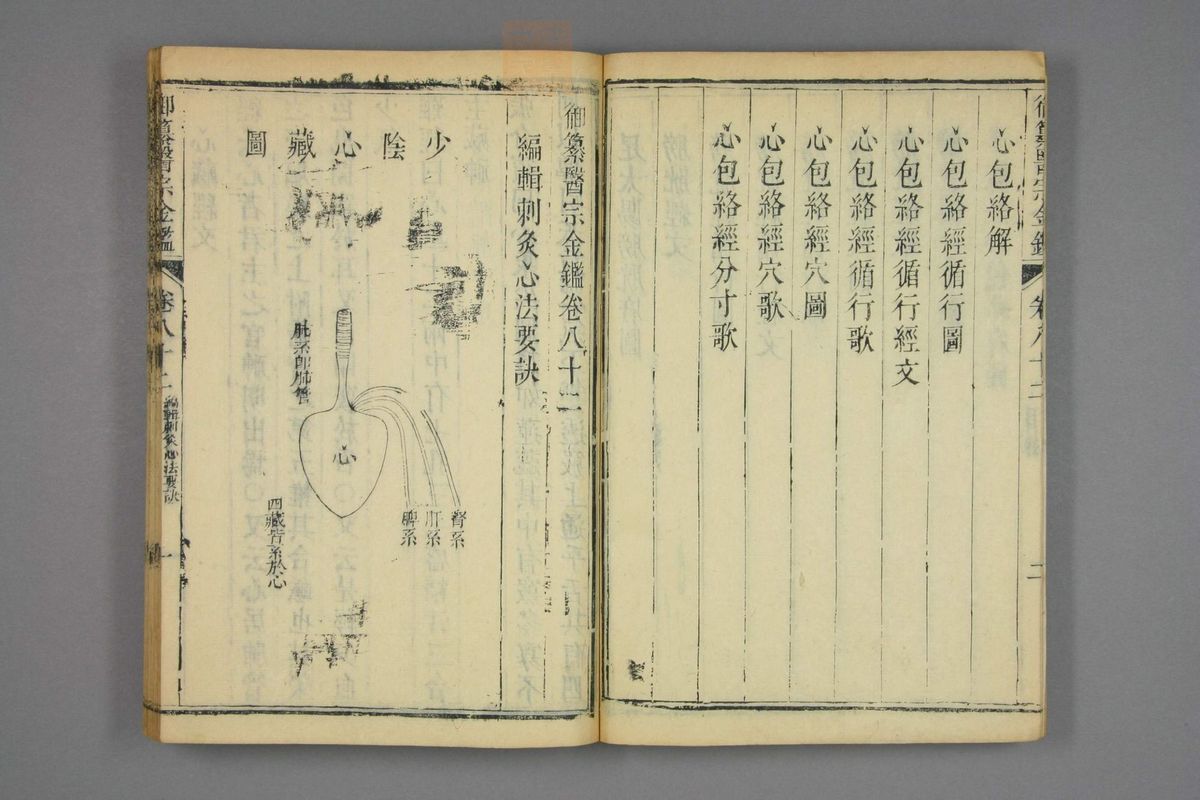 心包絡解
心包絡經循行圖
心包絡經循行經文
心包絡經循行歌
心包絡經穴圖
心包絡經穴歌
心包絡經分寸歌
卷八十二
二
御纂醫宗金鑑卷八十二
編輯刺灸心法要訣
少陰心藏圖
腎系
肝系
脾系
心
肺系即肺管
四藏皆系於心
御纂醫宗金鑑
卷八十二
編輯刺灸心法要訣
一